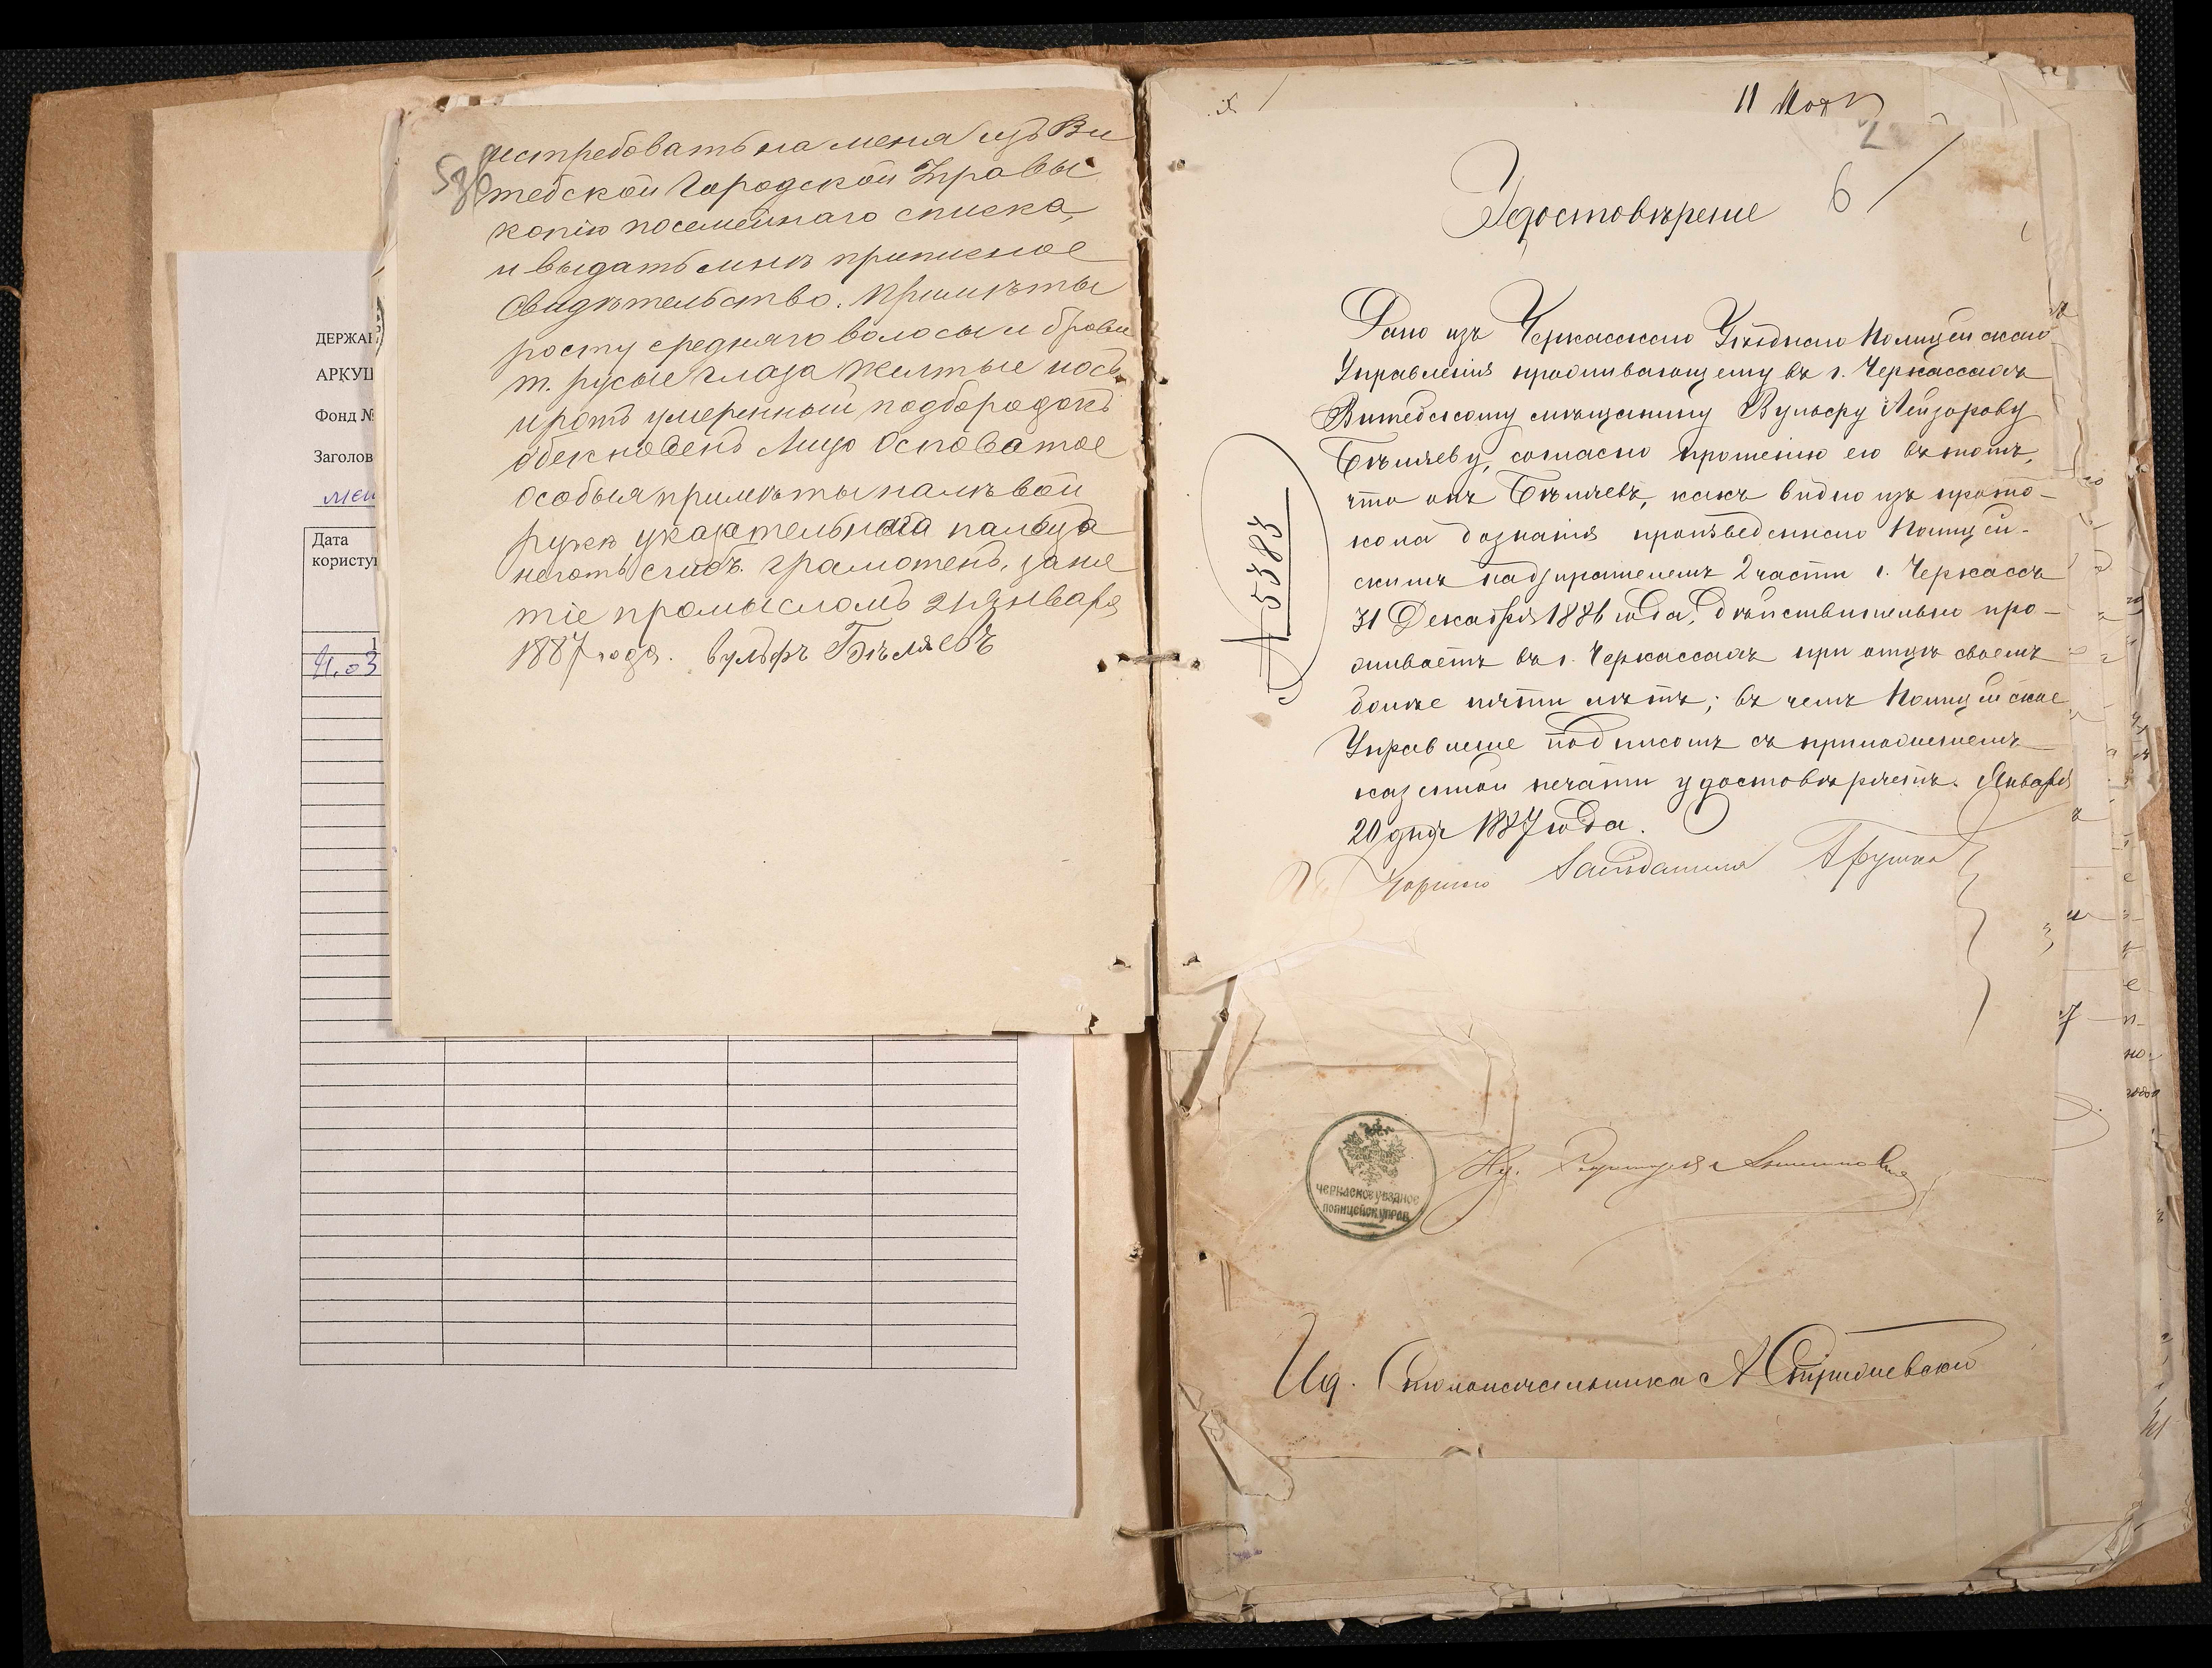 ДЕРЖАВ
АРКУШ
Фонд №
Заголов
Дата
користу
11.03
истребовать на меня изъ Ви
тебской Городской Управы
копію посемейнаго списка,
и выдать мнѣ приписное
свидѣтельство. Примѣты
росту средняго волосы и брови
т. русые глаза желтые носъ
и ротъ умеренный подбородокъ
обекновенъ лицо Осповатое
особыя примѣты на лѣвой
рукѣ указательнаго пальца
неготь грамотенъ, заня
тіе промысломъ 21 Января
1887 года. Вульфъ Бѣляевъ
2
Удостовѣреніе
6
Дано изъ Черкасскаго Уѣзднаго Полицейскаго
Управленія проживающему въ г. Черкассахъ
Витебскому мѣщанину Вульфу Лейзорову
Бѣляеву, согласно прошенію его въ томъ,
что онъ Бѣляевъ, какъ видно изъ прото-
кола дознанія произведеннаго Полицей-
скимъ надзирателемъ 2 части г. Черкассъ
31 Декабря 1886 года, дѣйствительно про-
живаетъ въ г. Черкассахъ при отцѣ своемъ
болѣе пяти лѣтъ; въ чемъ Полицейское
Управленіе подписомъ съ приложеніемъ
казенной печати удостовѣряетъ. Января
20 дня 1887 года.
№ 5383
ЧЕРКАСКОЕ УѢЗДНОЕ
ПОЛИЦЕЙСК. УПРАВ.
Ид. Столоначальника А